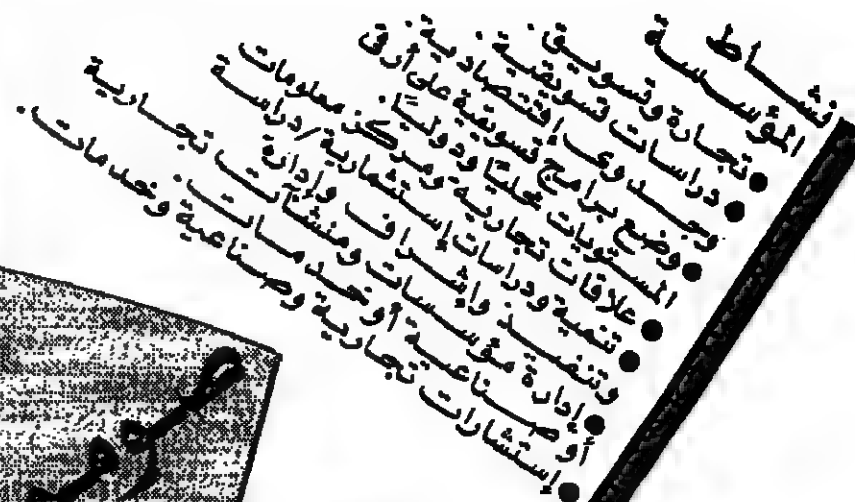 نشاط
المؤسسة
● تجارة وتسويق.
● دراسات تسويقية.
وجدوى إقتصادية.
● وضع برامج تسويقية على أرقى
المستويات محليًا ودوليًا.
● علاقات تجارية ومركز معلومات
● تنمية ودراسات إستثمارية/دراسة
وتنفيذ وإشراف وإدارة
● إدارة مؤسسات ومنشآت تجارية
أو صناعية أو خدمات.
● إستشارات تجارية وصناعية وخدمات.